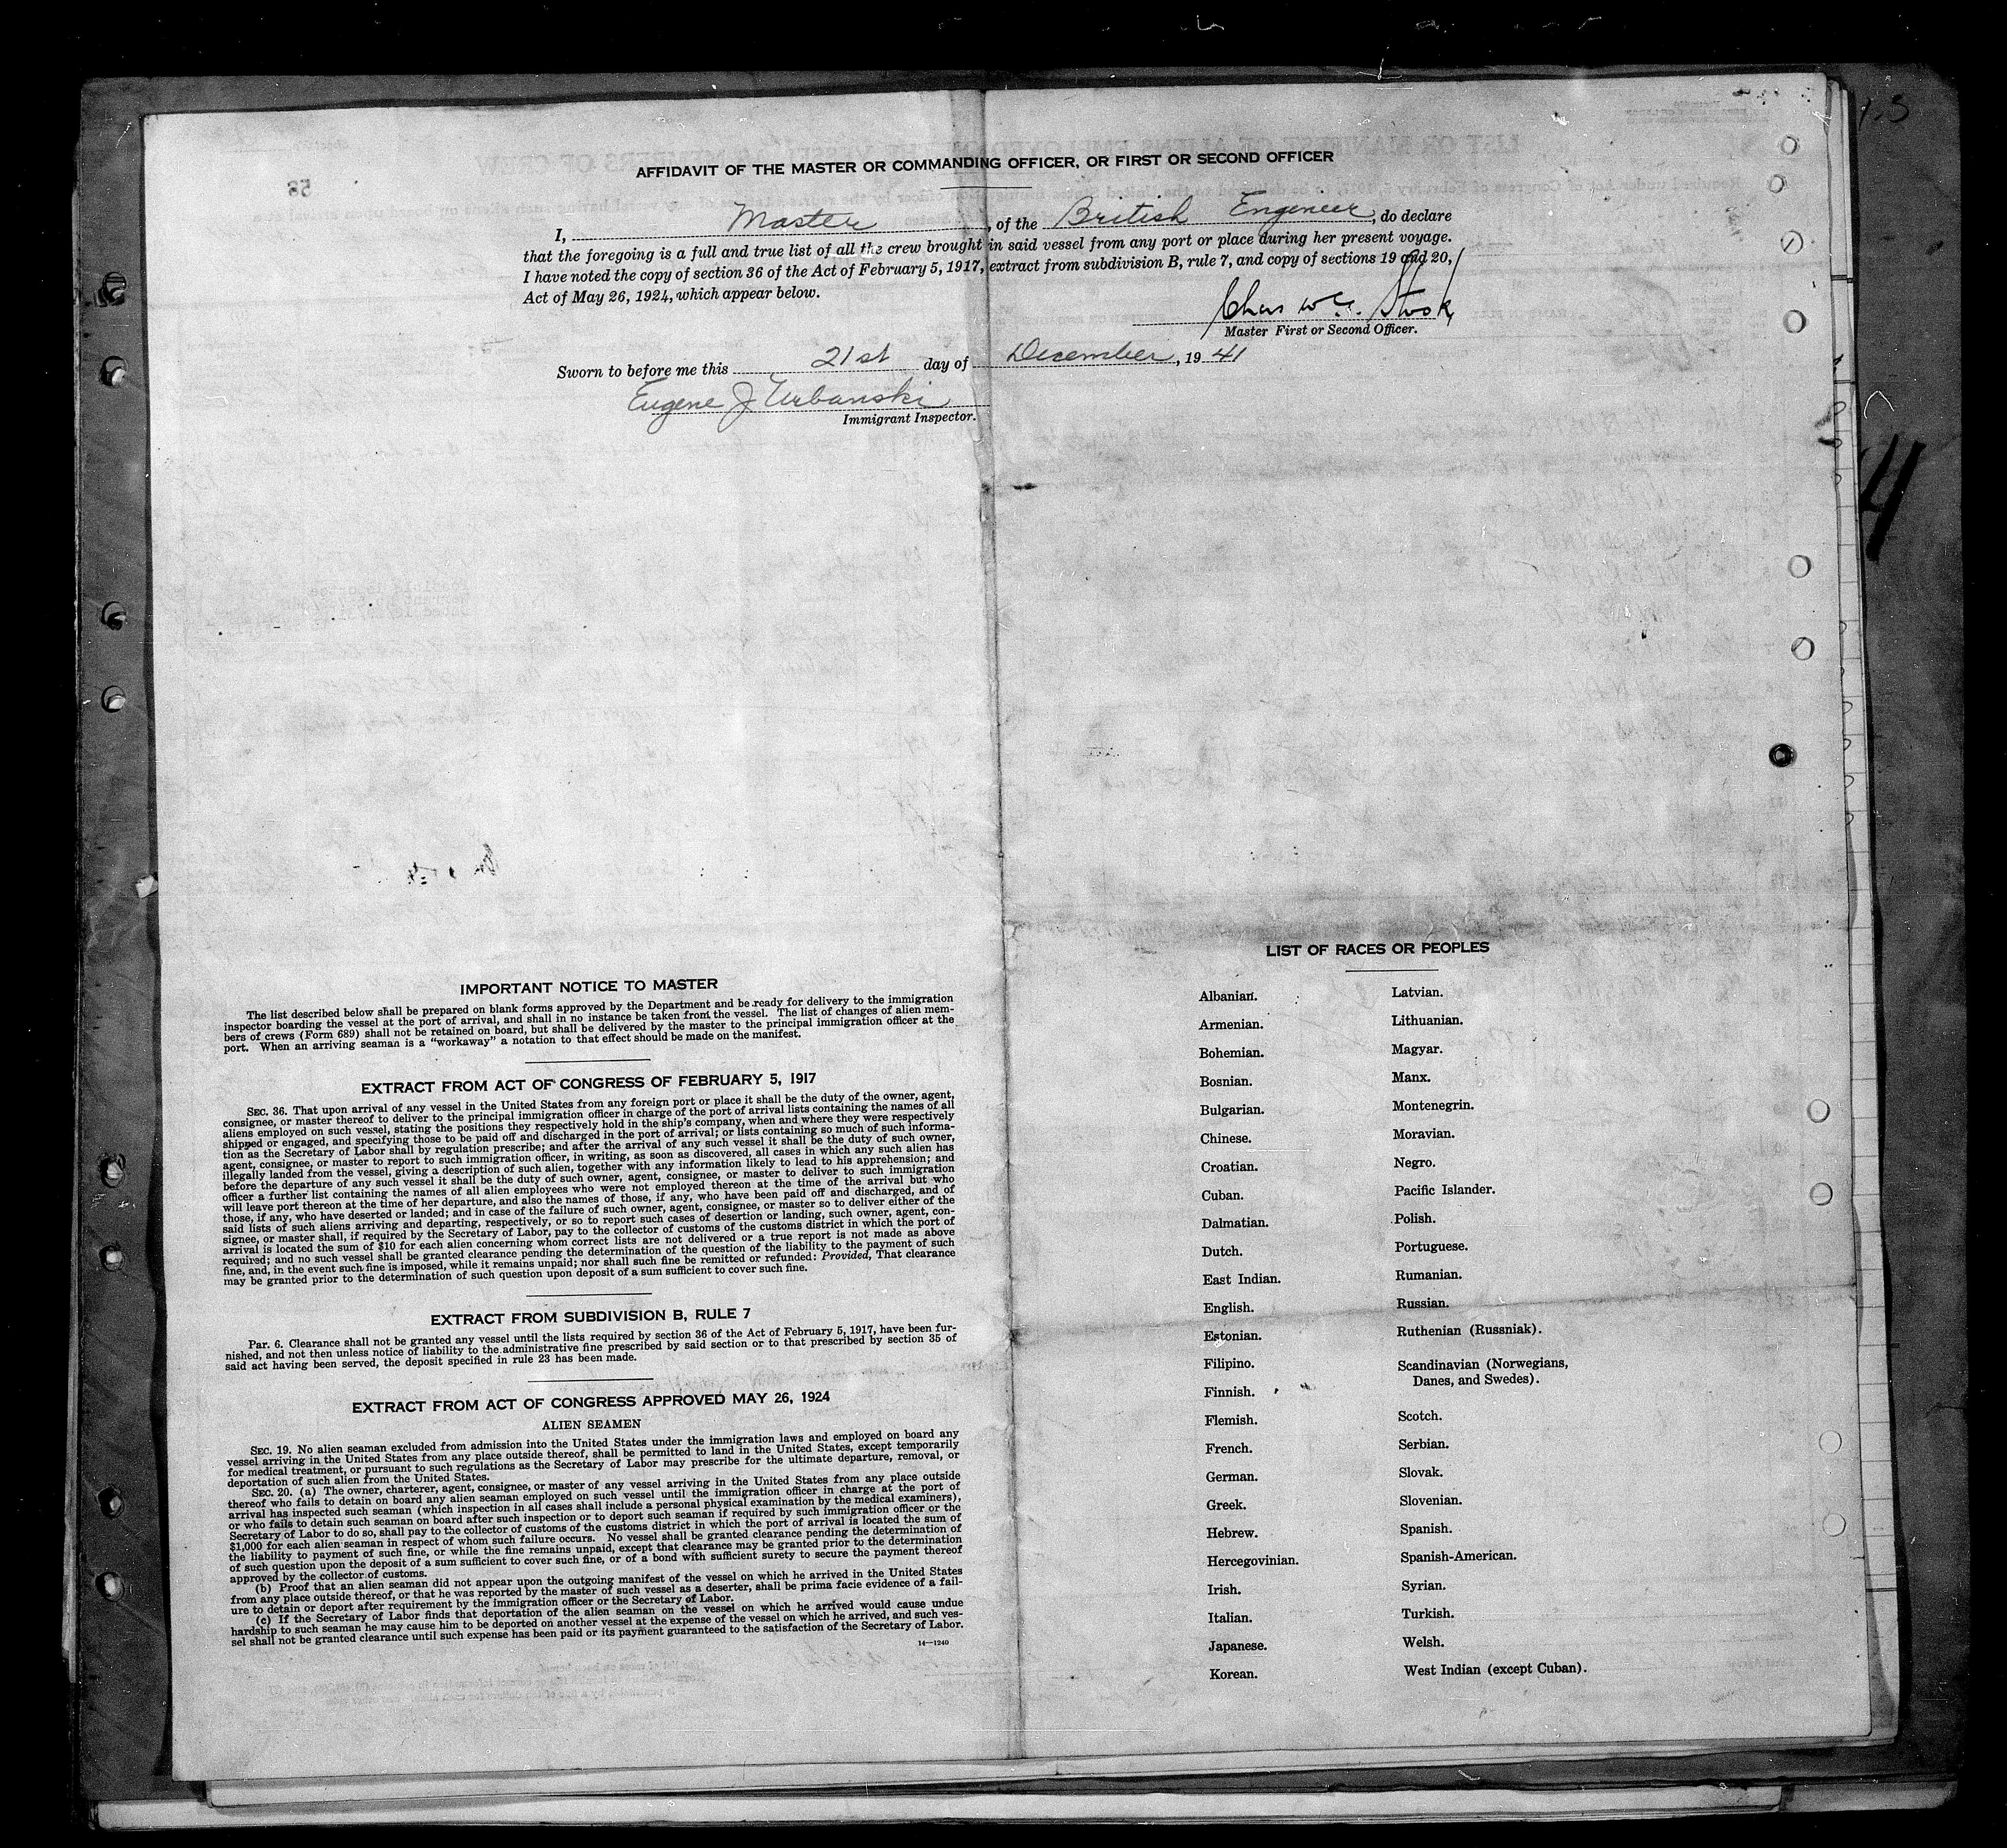 AFFIDAVIT OF THE MASTER OR COMMANDING OFFICER, OR FIRST OR SECOND OFFICER
I, Master, of the British Engeneer, do declare
that the foregoing is a full and true list of all the crew brought in said vessel from any port or place during her present voyage.
I have noted the copy of section 36 of the Act of February 5, 1917, extract from subdivision B, rule 7, and copy of sections 19 and 20,
Act of May 26, 1924, which appear below.
Chas
Master First or Second Officer.
Sworn to before me this 21st day of December, 19 41
Eugene J Urbanski
Immigrant Inspector.
IMPORTANT NOTICE TO MASTER
The list described below shall be prepared on blank forms approved by the Department and be ready for delivery to the immigration
inspector boarding the vessel at the port of arrival, and shall in no instance be taken from the vessel. The list of changes of alien mem-
bers of crews (Form 689) shall not be retained on board, but shall be delivered by the master to the principal immigration officer at the
port. When an arriving seaman is a "workaway" a notation to that effect should be made on the manifest.
EXTRACT FROM ACT OF CONGRESS OF FEBRUARY 5, 1917
SEC. 36. That upon arrival of any vessel in the United States from any foreign port or place it shall be the duty of the owner, agent,
consignee, or master thereof to deliver to the principal immigration officer in charge of the port of arrival lists containing the names of all
aliens employed on such vessel, stating the positions they respectively hold in the ship's company, when and where they were respectively
shipped or engaged, and specifying those to be paid off and discharged in the port of arrival; or lists containing so much of such informa-
tion as the Secretary of Labor shall by regulation prescribe; and after the arrival of any such vessel it shall be the duty of such owner,
agent, consignee, or master to report to such immigration officer, in writing, as soon as discovered, all cases in which any such alien has
illegally landed from the vessel, giving a description of such alien, together with any information likely to lead to his apprehension; and
before the departure of any such vessel it shall be the duty of such owner, agent, consignee, or master to deliver to such immigration
officer a further list containing the names of all alien employees who were not employed thereon at the time of the arrival but who
will leave port thereon at the time of her departure, and also the names of those, if any, who have been paid off and discharged, and of
those, if any, who have deserted or landed; and in case of the failure of such owner, agent, consignee, or master so to deliver either of the
said lists of such aliens arriving and departing, respectively, or so to report such cases of desertion or landing, such owner, agent, con-
signee, or master shall, if required by the Secretary of Labor, pay to the collector of customs of the customs district in which the port of
arrival is located the sum of $10 for each alien concerning whom correct lists are not delivered or a true report is not made as above
required; and no such vessel shall be granted clearance pending the determination of the question of the liability to the payment of such
fine, and, in the event such fine is imposed, while it remains unpaid; nor shall such fine be remitted or refunded: Provided, That clearance
may be granted prior to the determination of such question upon deposit of a sum sufficient to cover such fine.
EXTRACT FROM SUBDIVISION B, RULE 7
Par. 6. Clearance shall not be granted any vessel until the lists required by section 36 of the Act of February 5, 1917, have been fur-
nished, and not then unless notice of liability to the administrative fine prescribed by said section or to that prescribed by section 35 of
said act having been served, the deposit specified in rule 23 has been made.
EXTRACT FROM ACT OF CONGRESS APPROVED MAY 26, 1924
ALIEN SEAMEN
SEC. 19. No alien seaman excluded from admission into the United States under the immigration laws and employed on board any
vessel arriving in the United States from any place outside thereof, shall be permitted to land in the United States, except temporarily
for medical treatment, or pursuant to such regulations as the Secretary of Labor may prescribe for the ultimate departure, removal, or
deportation of such alien from the United States.
SEC. 20. (a) The owner, charterer, agent, consignee, or master of any vessel arriving in the United States from any place outside
thereof who fails to detain on board any alien seaman employed on such vessel until the immigration officer in charge at the port of
arrival has inspected such seaman (which inspection in all cases shall include a personal physical examination by the medical examiners),
or who fails to detain such seaman on board after such inspection or to deport such seaman if required by such immigration officer or the
Secretary of Labor to do so, shall pay to the collector of customs of the customs district in which the port of arrival is located the sum of
$1,000 for each alien seaman in respect of whom such failure occurs. No vessel shall be granted clearance pending the determination of
the liability to payment of such fine, or while the fine remains unpaid, except that clearance may be granted prior to the determination
of such question upon the deposit of a sum sufficient to cover such fine, or of a bond with sufficient surety to secure the payment thereof
approved by the collector of customs.
(b) Proof that an alien seaman did not appear upon the outgoing manifest of the vessel on which he arrived in the United States
from any place outside thereof, or that he was reported by the master of such vessel as a deserter, shall be prima facie evidence of a fail-
ure to detain or deport after requirement by the immigration officer or the Secretary of Labor.
(c) If the Secretary of Labor finds that deportation of the alien seaman on the vessel on which he arrived would cause undue
hardship to such seaman he may cause him to be deported on another vessel at the expense of the vessel on which he arrived, and such ves-
sel shall not be granted clearance until such expense has been paid or its payment guaranteed to the satisfaction of the Secretary of Labor.
14—1240
LIST OF RACES OR PEOPLES
Albanian.
Armenian.
Bohemian.
Bosnian.
Bulgarian.
Chinese.
Croatian.
Cuban.
Dalmatian.
Dutch.
East Indian.
English.
Estonian.
Filipino.
Finnish.
Flemish.
French.
German.
Greek.
Hebrew.
Hercegovinian.
Irish.
Italian.
Japanese.
Korean.
Latvian.
Lithuanian.
Magyar.
Manx.
Montenegrin.
Moravian.
Negro.
Pacific Islander.
Polish.
Portuguese.
Rumanian.
Russian.
Ruthenian (Russniak).
Scandinavian (Norwegians,
Danes, and Swedes).
Scotch.
Serbian.
Slovak.
Slovenian.
Spanish.
Spanish-American.
Syrian.
Turkish.
Welsh.
West Indian (except Cuban).
4